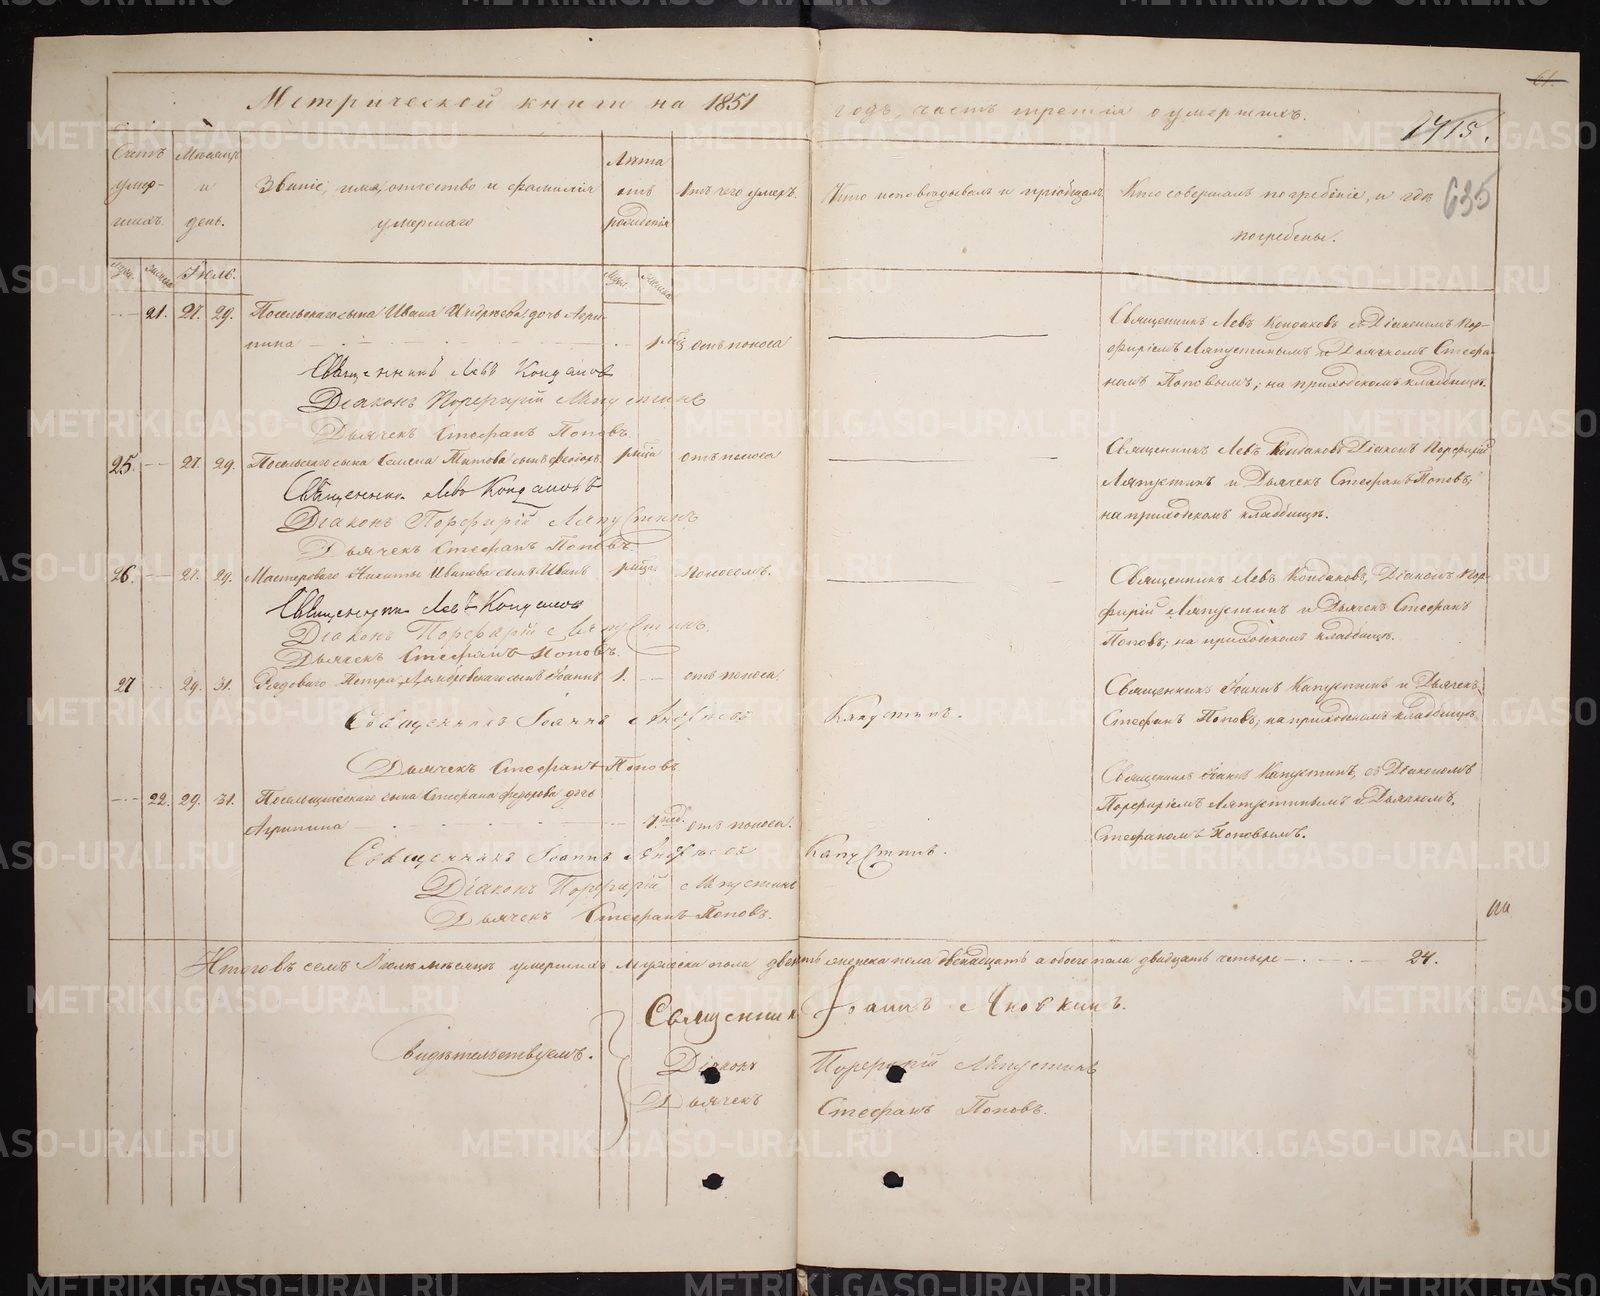 Метрической книги на 1851 годъ, часть третія о умершихъ.
61.
1715.
635
Счетъ умер-шихъ.
Мѣсяцъ и день.
Званіе, имя, отчество и фамилія умершаго
Лѣта отъ рожденія
Отъ чего умеръ.
Кто исповѣдывалъ и пріобщалъ
Кто совершалъ погребеніе, и гдѣ погребены.
Іюль.
21. 27. 29. Посельскаго сына Ивана дочь Агри-
пина отъ поноса
Священникъ Левъ Кондаковъ съ Діакономъ Пор-
фиріемъ Ляпустинымъ и Дьячкомъ Стефа-
номъ Поповымъ; на приходскомъ кладбищѣ.
Священникъ Левъ Кондаковъ
Діаконъ Порфирій Ляпустинъ
Дьячекъ Стефанъ Поповъ.
25. 27. 29. Посельскаго сына Семена Титова сынъ Феодоръ отъ поноса
Священникъ Левъ Кондаковъ Діаконъ Порфирій
Ляпустинъ и Дьячекъ Стефанъ Поповъ;
на приходскомъ кладбищѣ.
Священникъ Левъ Кондаковъ
Діаконъ Порфирій Ляпустинъ
Дьячекъ Стефанъ Поповъ.
26. 27. 29. Мастероваго Никиты Иванова сынъ Иванъ поносомъ.
Священникъ Левъ Кондаковъ, Діаконъ Пор-
фирій Ляпустинъ и Дьячекъ Стефанъ
Поповъ; на приходскомъ кладбищѣ.
Священникъ Левъ Кондаковъ
Діаконъ Порфирій Ляпустинъ.
Дьячекъ Стефанъ Поповъ.
27 29. 31. Рядоваго Петра сынъ Іоаннъ 1. отъ поноса
Священникъ Іоаннъ Капустинъ и Дьячекъ
Стефанъ Поповъ; на приходскомъ кладбищѣ.
Священникъ Іоаннъ Андреевъ Капустинъ.
Дьячекъ Стефанъ Поповъ
22. 29. 31. сына Стефана Федорова дочь
Агрипина отъ поноса.
Священникъ Іоаннъ Капустинъ, съ Діакономъ
Порфиріемъ Ляпустинымъ и Дьячкомъ
Стефаномъ Поповымъ.
Священникъ Іоаннъ Андреевъ Капустинъ.
Діаконъ Порфирій Ляпустинъ
Дьячекъ Стефанъ Поповъ.
Итого въ семъ Іюлѣ мѣсяцѣ умершихъ мужеска пола женска пола двенадцать а обоего пола двадцать четыре 24.
Свидѣтельствуемъ.
Священникъ Іоаннъ Яновкинъ.
Діаконъ Порфирій Ляпустинъ
Дьячекъ Стефанъ Поповъ.
METRIKI.GASO-URAL.RU